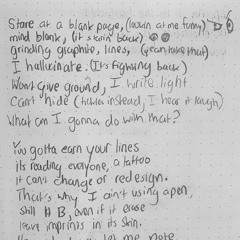 Stare at a blank page, (lookin at me funny)
mind blank, (it starin' back)
grinding graphite, lines, (yeah take that)
I hallucinate. (It's fighting back)
Won't give ground, I write light
Can't hide (tickles instead, I hear it laugh)
What am I gonna do with that?
You gotta earn your lines
its reading everyone, a tattoo
it can't change or redesign.
That's why I ain't using a pen,
still HB, even if it erase
leave imprints in its skin.
let me note